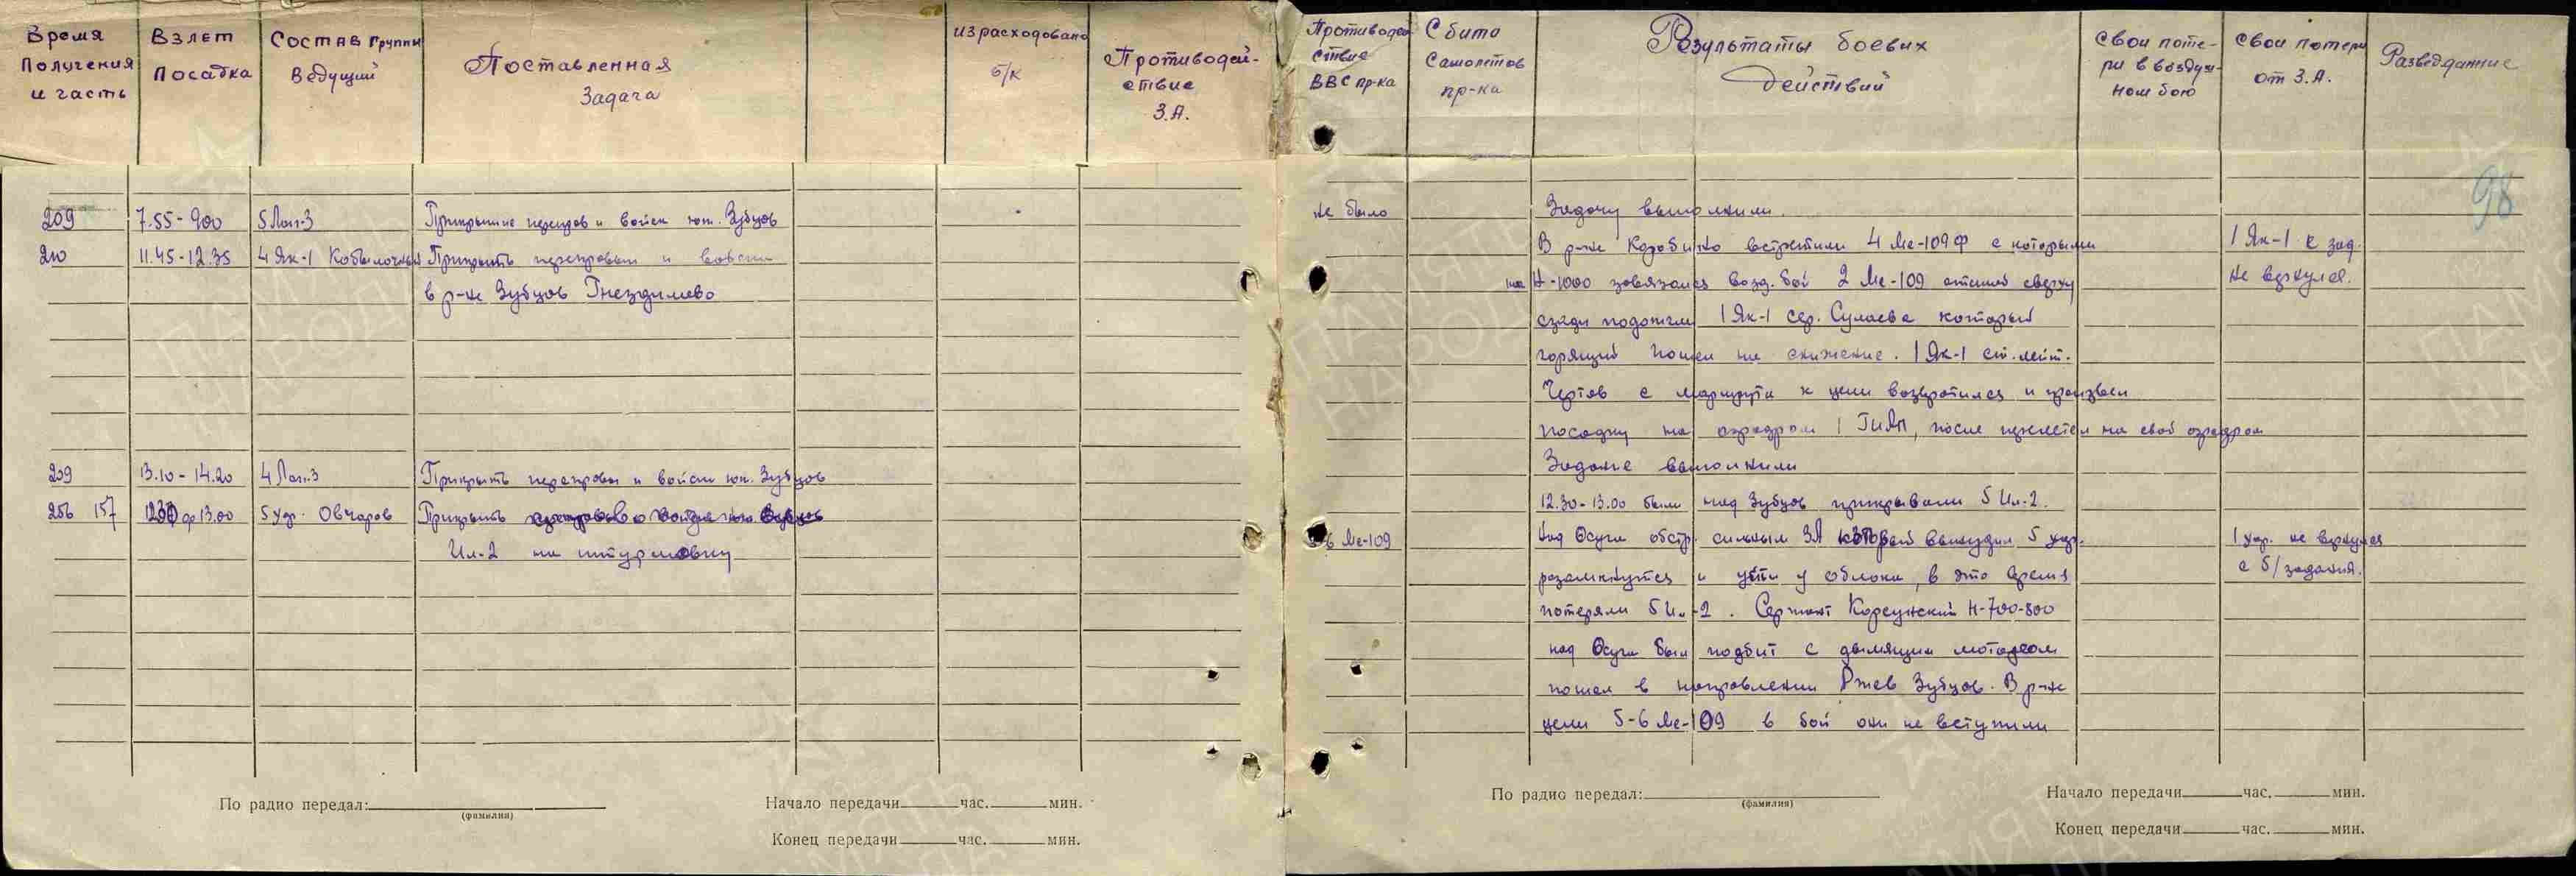 Время
Получения
и часть
Взлет
Посадка
Состав группы
Ведущий
Поставленная
Задача
израсходовано
б/к
Противодей-
ствие
З.А.
Противодей
ствие
ВВС пр-ка
Сбито
Самолетов
пр-ка
Результаты боевих
действий
Свои поте-
ри в воздуш-
ном бою
Свои потери
от З.А.
Разведданние
98
209 7.55-900 5 Лаг-3 Прикрытие переправ и войск юж. Зубцов
не было Задачу выполнили.
210 11.45-12.35 4 Як-1 Прикрыть переправы и войска
в р-не Зубцов Гнездилево
В р-не встретили 4 Ме-109Ф с которыми
на Н-1000 завязался возд. бой 2 Ме-109 сверху
сзади подожгли 1 Як-1 сер. который
горящий пошел на снижение. 1 Як-1 ст. лейт.
с маршрута к цели возвратился и произвел
посадку на аэродром 1 ГИАП, после перелетел на свой аэродром
1 Як-1 с зад.
не вернулся.
209 13.10-14.20 4 Лаг-3 Прикрыть переправы и войска юж. Зубцов
Задание выполнили
256 157 1230 13.00 5 хар. Овчаров Прикрыть
Ил-2 на штурмовку
12.30-13.00 были над Зубцов прикрывали 5 Ил-2.
5-6 Ме-109 Над Осуга обстр. сильным ЗА который вынудил 5 хар.
разомкнутся и уйти у облока, в это время
потеряли 5 Ил-2. Сержант Корсунский Н-700-800
над Осуга был подбит с дымящим мотором
пошел в направлении Ржев Зубцов. В р-не
цели 5-6 Ме-109 в бой они не вступили
1 хар. не вернулся
с б/задания.
По радио передал:
(фамилия)
Начало передачи час. мин.
Конец передачи час. мин.
По радио передал:
(фамилия)
Начало передачи час. мин.
Конец передачи час. мин.